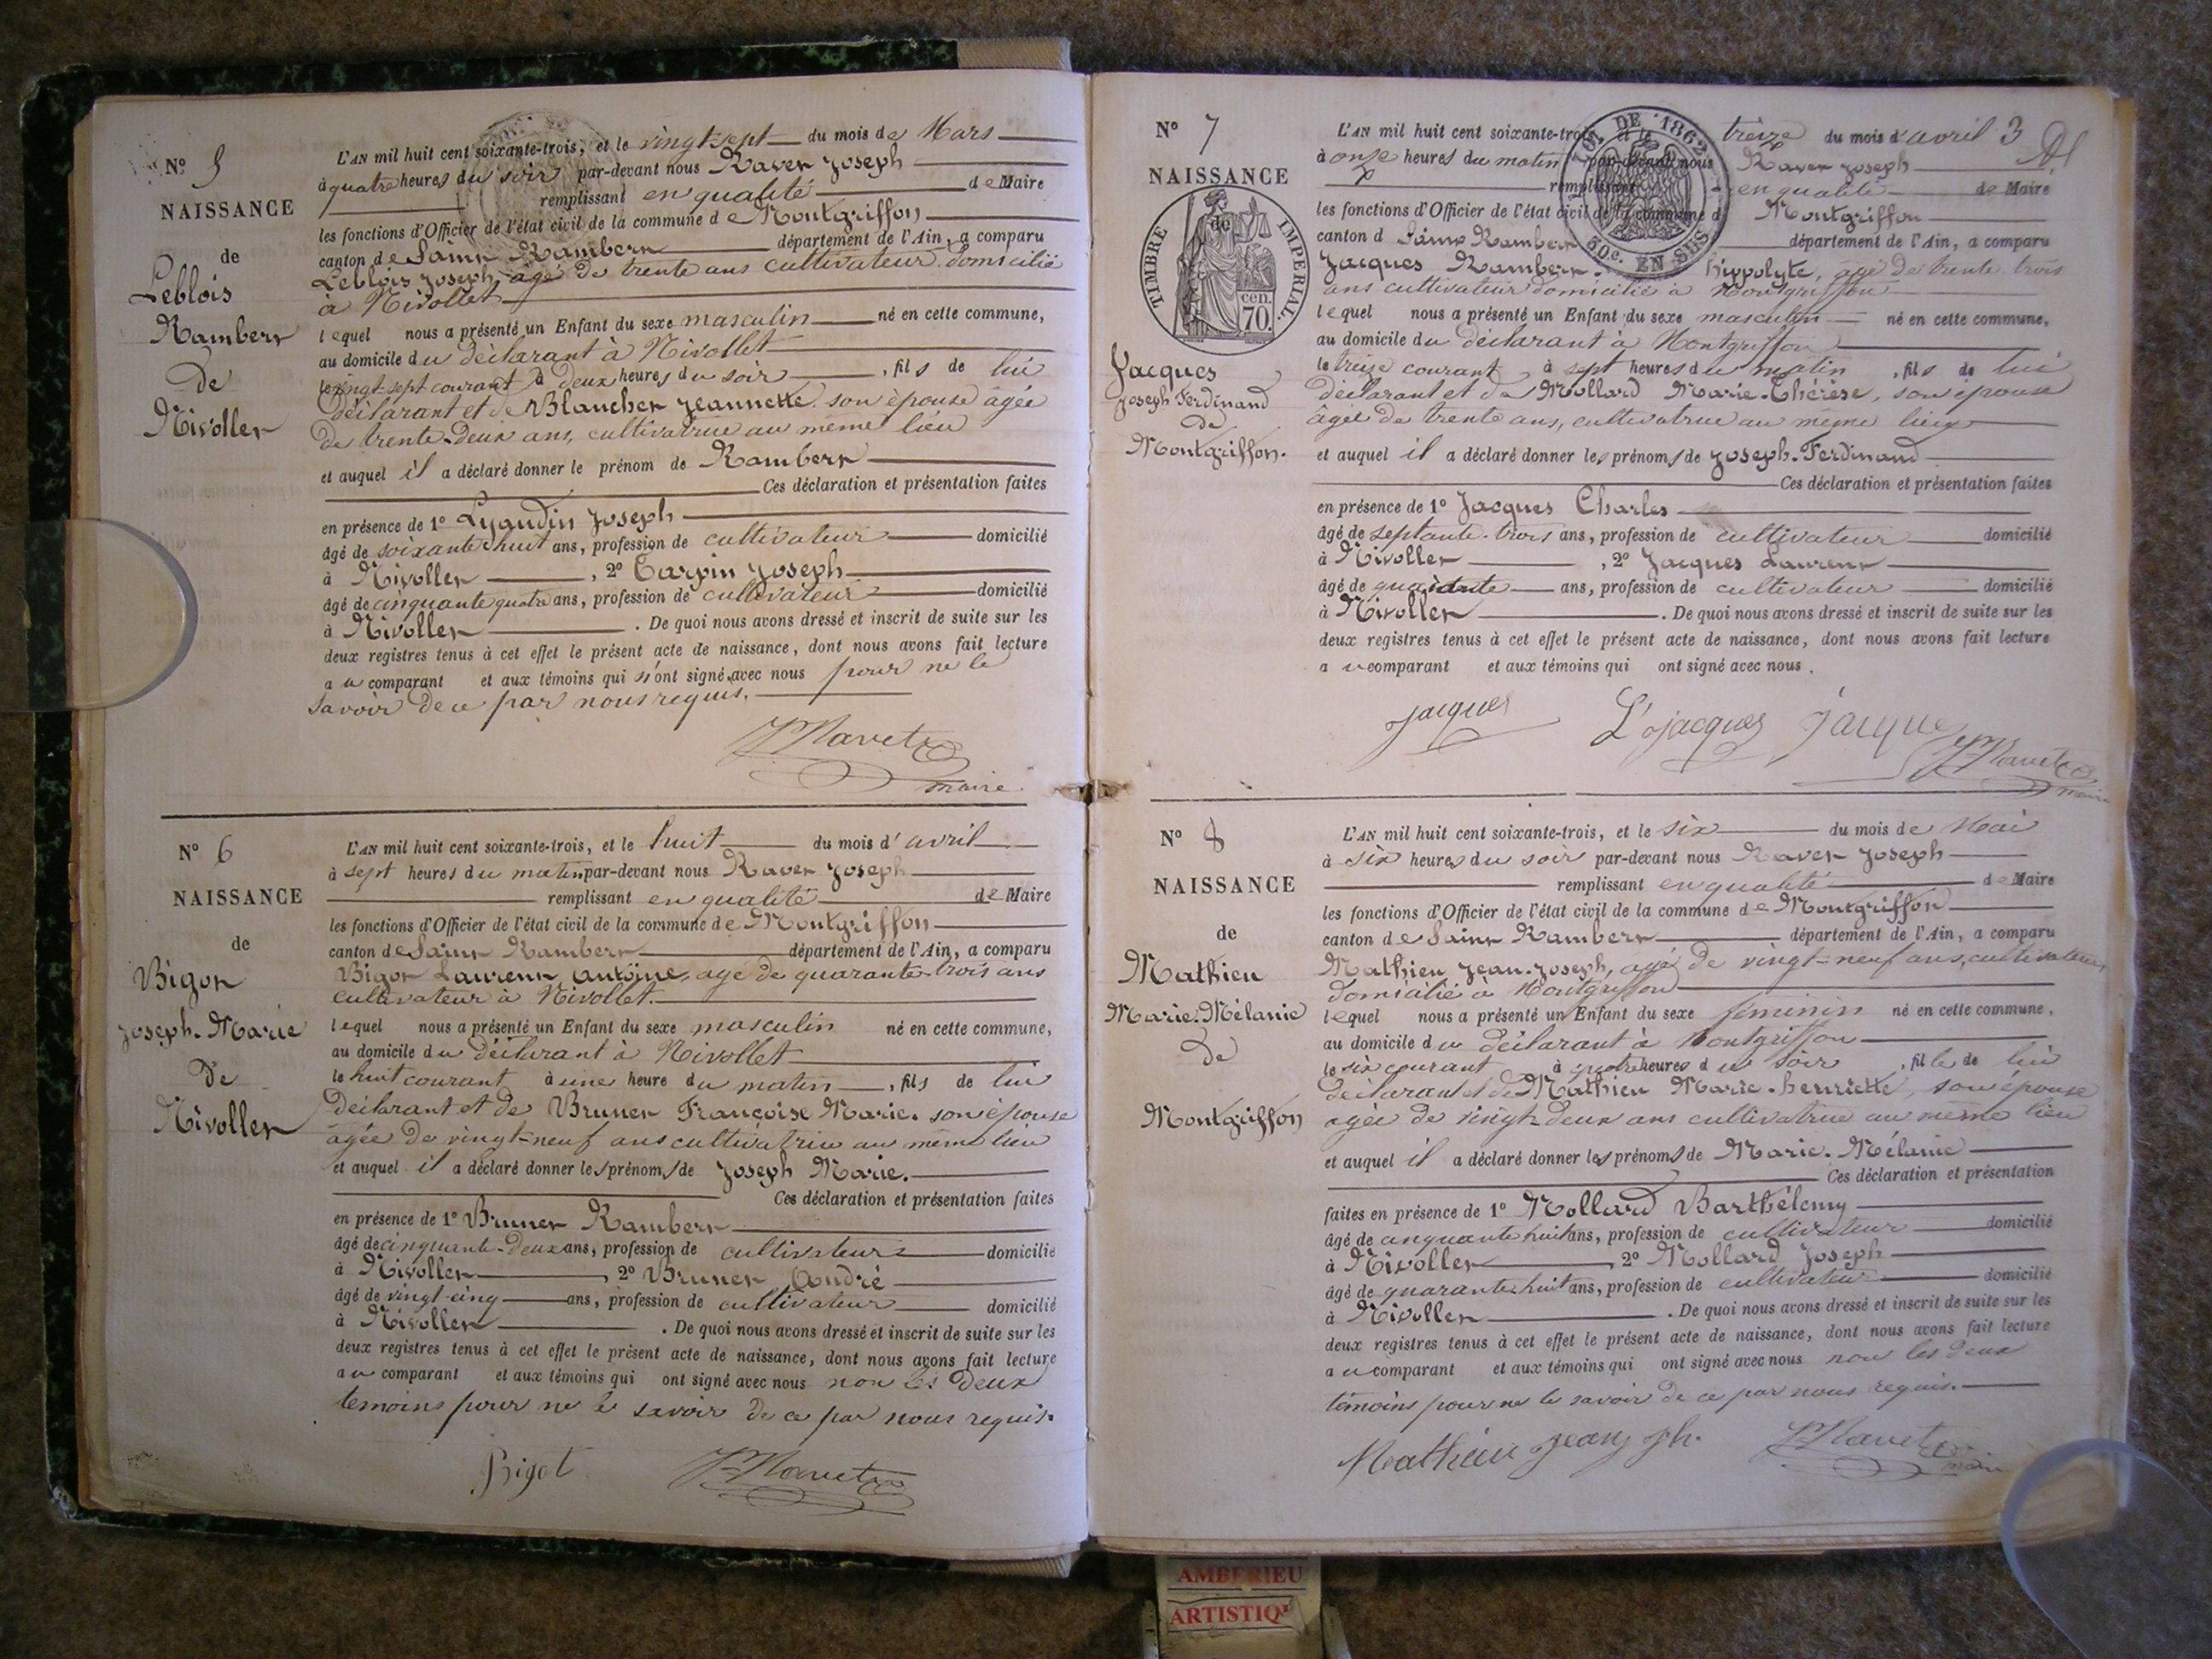 N° 5
NAISSANCE
de
Leblois
Rambert
de
Nivollet
L'AN mil huit cent soixante-trois, et le vingt-sept du mois de Mars
à quatre heures du soir par-devant nous Ravet Joseph
remplissant en qualité de Maire
les fonctions d'Officier de l'état civil de la commune de Montgriffon
canton de Saint Rambert département de l'Ain, a comparu
Leblois Joseph, âgé de trente ans cultivateur domicilié
à Nivollet
lequel nous a présenté un Enfant du sexe masculin né en cette commune,
au domicile du déclarant à Nivollet
le vingt-sept courant à deux heures du soir, fils de lui
déclarant et de Blanchet Jeannette son épouse âgée
de trente-deux ans, cultivatrice au même lieu
et auquel il a déclaré donner le prénom de Rambert
Ces déclaration et présentation faites
en présence de 1° Lyaudin Joseph
âgé de soixante huit ans, profession de cultivateur domicilié
à Nivollet, 2° Carpin Joseph
âgé de cinquante quatre ans, profession de cultivateur domicilié
à Nivollet. De quoi nous avons dressé et inscrit de suite sur les
deux registres tenus à cet effet le présent acte de naissance, dont nous avons fait lecture
au comparant et aux témoins qui n'ont signé avec nous pour ne le
savoir de ce par nous requis.
JRavet
maire
N° 6
NAISSANCE
de
Bigot
Joseph-Marie
de
Nivollet
L'AN mil huit cent soixante-trois, et le huit du mois d'avril
à sept heures du matin par-devant nous Ravet Joseph
remplissant en qualité de Maire
les fonctions d'Officier de l'état civil de la commune de Montgriffon
canton de Saint Rambert département de l'Ain, a comparu
Bigot Laurent Antoine, agé de quarante-trois ans
cultivateur à Nivollet.
lequel nous a présenté un Enfant du sexe masculin né en cette commune,
au domicile du déclarant à Nivollet
le huit courant à une heure du matin, fils de lui
déclarant et de Brunet Françoise Marie. son épouse
âgée de vingt-neuf ans cultivatrice au même lieu
et auquel il a déclaré donner les prénoms de Joseph Marie.
Ces déclaration et présentation faites
en présence de 1° Brunet Rambert
âgé de cinquante-deux ans, profession de cultivateur domicilié
à Nivollet, 2° Brunet André
âgé de vingt-cinq ans, profession de cultivateur domicilié
à Nivollet. De quoi nous avons dressé et inscrit de suite sur les
deux registres tenus à cet effet le présent acte de naissance, dont nous avons fait lecture
au comparant et aux témoins qui ont signé avec nous non les deux
témoins pour ne le savoir de ce par nous requis.
Bigot JRavet
N° 7
NAISSANCE
de
TIMBRE IMPERIAL
cen.
70.
Jacques
Joseph Ferdinand
de
Montgriffon.
DE 1862
50c. EN SUS
L'AN mil huit cent soixante-trois, et le treize du mois d'avril 3
à onze heures du matin par-devant nous Ravet Joseph
remplissant en qualité de Maire
les fonctions d'Officier de l'état civil de la commune d Montgriffon
canton d Saint Rambert département de l'Ain, a comparu
Jacques Rambert. hippolyte, âgé de trente trois
ans cultivateur domicilié à Montgriffon
lequel nous a présenté un Enfant du sexe masculin né en cette commune,
au domicile du déclarant à Montgriffon
le treize courant à sept heures du matin, fils de lui
déclarant et de Mollard Marie-Thérèse, son épouse
âgée de trente ans, cultivatrice au même lieu
et auquel il a déclaré donner les prénoms de Joseph-Ferdinand
Ces déclaration et présentation faites
en présence de 1° Jacques Charles
âgé de septante-trois ans, profession de cultivateur domicilié
à Nivollet, 2° Jacques Laurent
âgé de quarante ans, profession de cultivateur domicilié
à Nivollet. De quoi nous avons dressé et inscrit de suite sur les
deux registres tenus à cet effet le présent acte de naissance, dont nous avons fait lecture
au comparant et aux témoins qui ont signé avec nous.
Jacques L'Jacques Jacque
JRavet
maire
N° 8
NAISSANCE
de
Mathieu
Marie-Mélanie
de
Montgriffon
L'AN mil huit cent soixante-trois, et le six du mois de Mai
à six heures du soir par-devant nous Ravet Joseph
remplissant en qualité de Maire
les fonctions d'Officier de l'état civil de la commune de Montgriffon
canton de Saint Rambert département de l'Ain, a comparu
Mathieu Jean-Joseph, agé de vingt-neuf ans, cultivateur
domicilié à Montgriffon
lequel nous a présenté un Enfant du sexe feminin né en cette commune,
au domicile du déclarant à Montgriffon
le six courant à quatre heures du soir, fille de lui
déclarant et de Mathieu Marie-henriette, son épouse
agée de vingt-deux ans cultivatrice au même lieu
et auquel il a déclaré donner les prénoms de Marie-Mélanie
Ces déclaration et présentation
faites en présence de 1° Mollard Barthélemy
âgé de cinquante huit ans, profession de cultivateur domicilié
à Nivollet, 2° Mollard Joseph
âgé de quarante huit ans, profession de cultivateur domicilié
à Nivollet. De quoi nous avons dressé et inscrit de suite sur les
deux registres tenus à cet effet le présent acte de naissance, dont nous avons fait lecture
au comparant et aux témoins qui ont signé avec nous non les deux
témoins pour ne le savoir de ce par nous requis.
Mathieu Jean Jph. JRavet
maire
AMBERIEU
ARTISTIQ